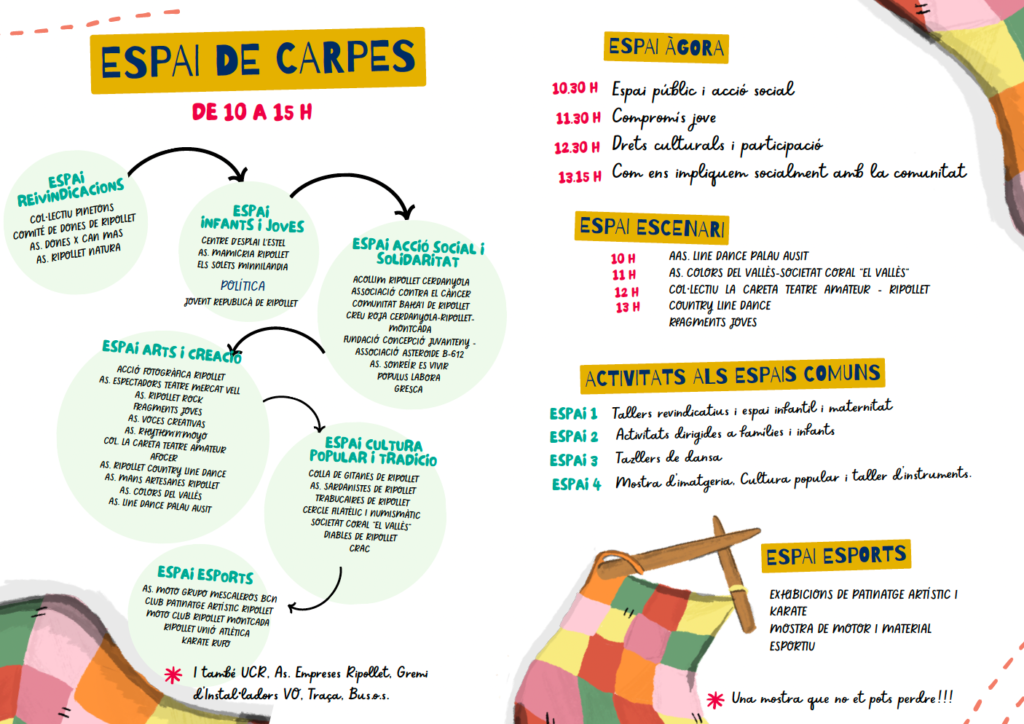 ESPAI DE CARPES
DE 10 A 15 H
ESPAI
REIVINDICACIONS
COL·LECTIU PINETONS
COMITÉ DE DONES DE RIPOLLET
AS. DONES X CAN MAS
AS. RIPOLLET NATURA
ESPAI
INFANTS I JOVES
CENTRE D'ESPLAI L'ESTEL
AS. MAMICRIA RIPOLLET
ELS SOLETS MINNILANDIA
POLÍTICA
JOVENT REPUBLICÀ DE RIPOLLET
ESPAI ACCIÓ SOCIAL I
SOLIDARITAT
ACOLLIM RIPOLLET CERDANYOLA
ASSOCIACIÓ CONTRA EL CÀNCER
COMUNITAT BAHA'I DE RIPOLLET
CREU ROJA CERDANYOLA-RIPOLLET-
MONTCADA
FUNDACIÓ CONCEPCIÓ JUVANTENY -
ASSOCIACIÓ ASTEROIDE B-612
AS. SONREÍR ES VIVIR
POPULUS LABORA
GRESCA
ESPAI ARTS I CREACIÓ
ACCIÓ FOTOGRÀFICA RIPOLLET
AS. ESPECTADORS TEATRE MERCAT VELL
AS. RIPOLLET ROCK
FRAGMENTS JOVES
AS. VOCES CREATIVAS
AS. RHYTHM'N'MOYO
COL. LA CARETA TEATRE AMATEUR
AFOCER
AS. RIPOLLET COUNTRY LINE DANCE
AS. MANS ARTESANES RIPOLLET
AS. COLORS DEL VALLÈS
AS. LINE DANCE PALAU AUSIT
ESPAI CULTURA
POPULAR I TRADICIÓ
COLLA DE GITANES DE RIPOLLET
AS. SARDANISTES DE RIPOLLET
TRABUCAIRES DE RIPOLLET
CERCLE FILATÈLIC I NUMISMÀTIC
SOCIETAT CORAL "EL VALLÈS"
DIABLES DE RIPOLLET
CRAC
ESPAI ESPORTS
AS. MOTO GRUPO MESCALEROS BCN
CLUB PATINATGE ARTÍSTIC RIPOLLET
MOTO CLUB RIPOLLET MONTCADA
RIPOLLET UNIÓ ATLÈTICA
KARATE RUFO
* I també UCR, As. Empreses Ripollet, Gremi
d'Instal·ladors VO, Traça, Bus.o.s.
ESPAI ÀGORA
10.30 H Espai públic i acció social
11.30 H Compromís jove
12.30 H Drets culturals i participació
13.15 H Com ens impliquem socialment amb la comunitat
ESPAI ESCENARI
10 H AAS. LINE DANCE PALAU AUSIT
11 H AS. COLORS DEL VALLÈS-SOCIETAT CORAL "EL VALLÈS"
12 H COL·LECTIU LA CARETA TEATRE AMATEUR - RIPOLLET
13 H COUNTRY LINE DANCE
FRAGMENTS JOVES
ACTIVITATS ALS ESPAIS COMUNS
ESPAI 1 Tallers revindicatius i espai infantil i maternitat
ESPAI 2 Activitats dirigides a famílies i infants
ESPAI 3 Tazllers de dansa
ESPAI 4 Mostra d'imatgeria, Cultura popular i taller d'instruments.
ESPAI ESPORTS
EXHIBICIONS DE PATINATGE ARTÍSTIC I
KARATE
MOSTRA DE MOTOR I MATERIAL
ESPORTIU
* Una mostra que no et pots perdre!!!